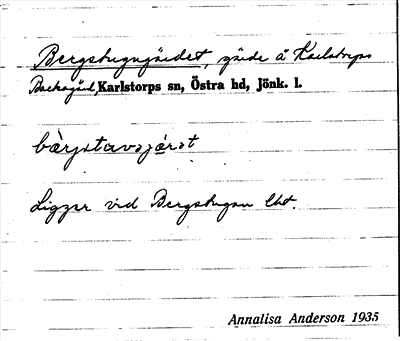 Bergstugugärdet, gärde å Karlstorps
Backagård, Karlstorps sn, Östra hd, Jönk. l.
bàrjstavɔjɑ́rət
Ligger vid Bergstugan lht.
Annalisa Anderson 1935